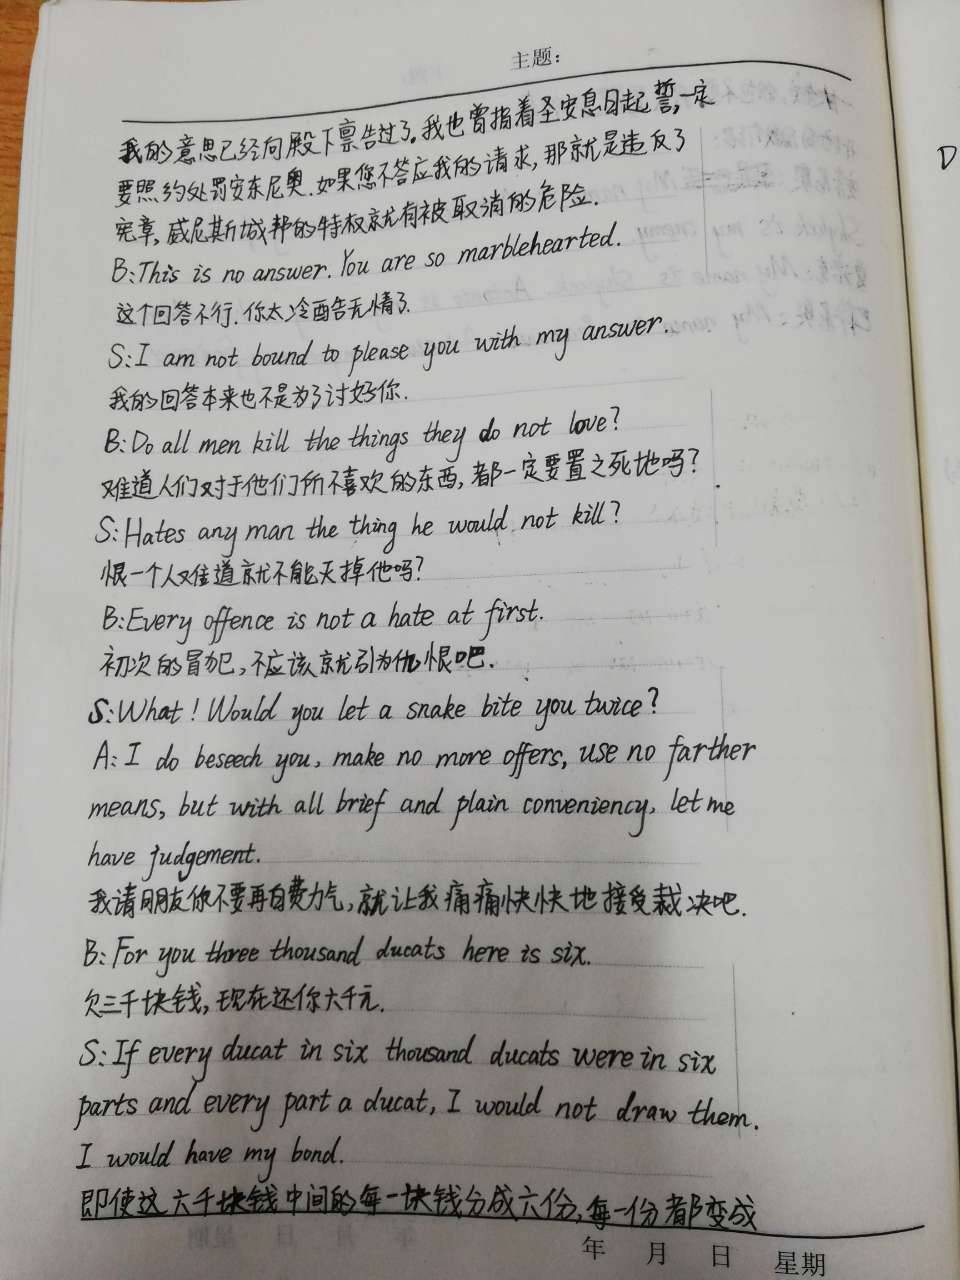 主题：
我的意思已经向殿下禀告过了。我也曾指着圣安息日起誓，一定
要照约处罚安东尼奥．如果您不答应我的请求，那就是违反了
宪章，威尼斯城邦的特权就有被取消的危险．
B:This is no answer. You are so marblehearted.
这个回答不行．你太冷酷无情了．
S:I am not bound to please you with my answer.
我的回答本来也不是为了讨好你．
B:Do all men kill the things they do not love?
难道人们对于他们所不喜欢的东西，都一定要置之死地吗？
S:Hates any man the thing he would not kill?
恨一个人难道就不能灭掉他吗？
B:Every offence is not a hate at first.
初次的冒犯，不应该就引为仇恨吧．
S:What! Would you let a snake bite you twice?
A:I do beseech you, make no more offers, use no farther
means, but with all brief and plain conveniency, let me
have judgement.
我请朋友你不要再白费力气，就让我痛痛快快地接受裁决吧．
B:For you three thousand ducats here is six.
欠三千块钱，现在还你六千元．
S:If every ducat in six thousand ducats were in six
parts and every part a ducat, I would not draw them.
I would have my bond.
即使这六千块钱中间的每一块钱分成六份，每一份都变成
年 月 日 星期
D